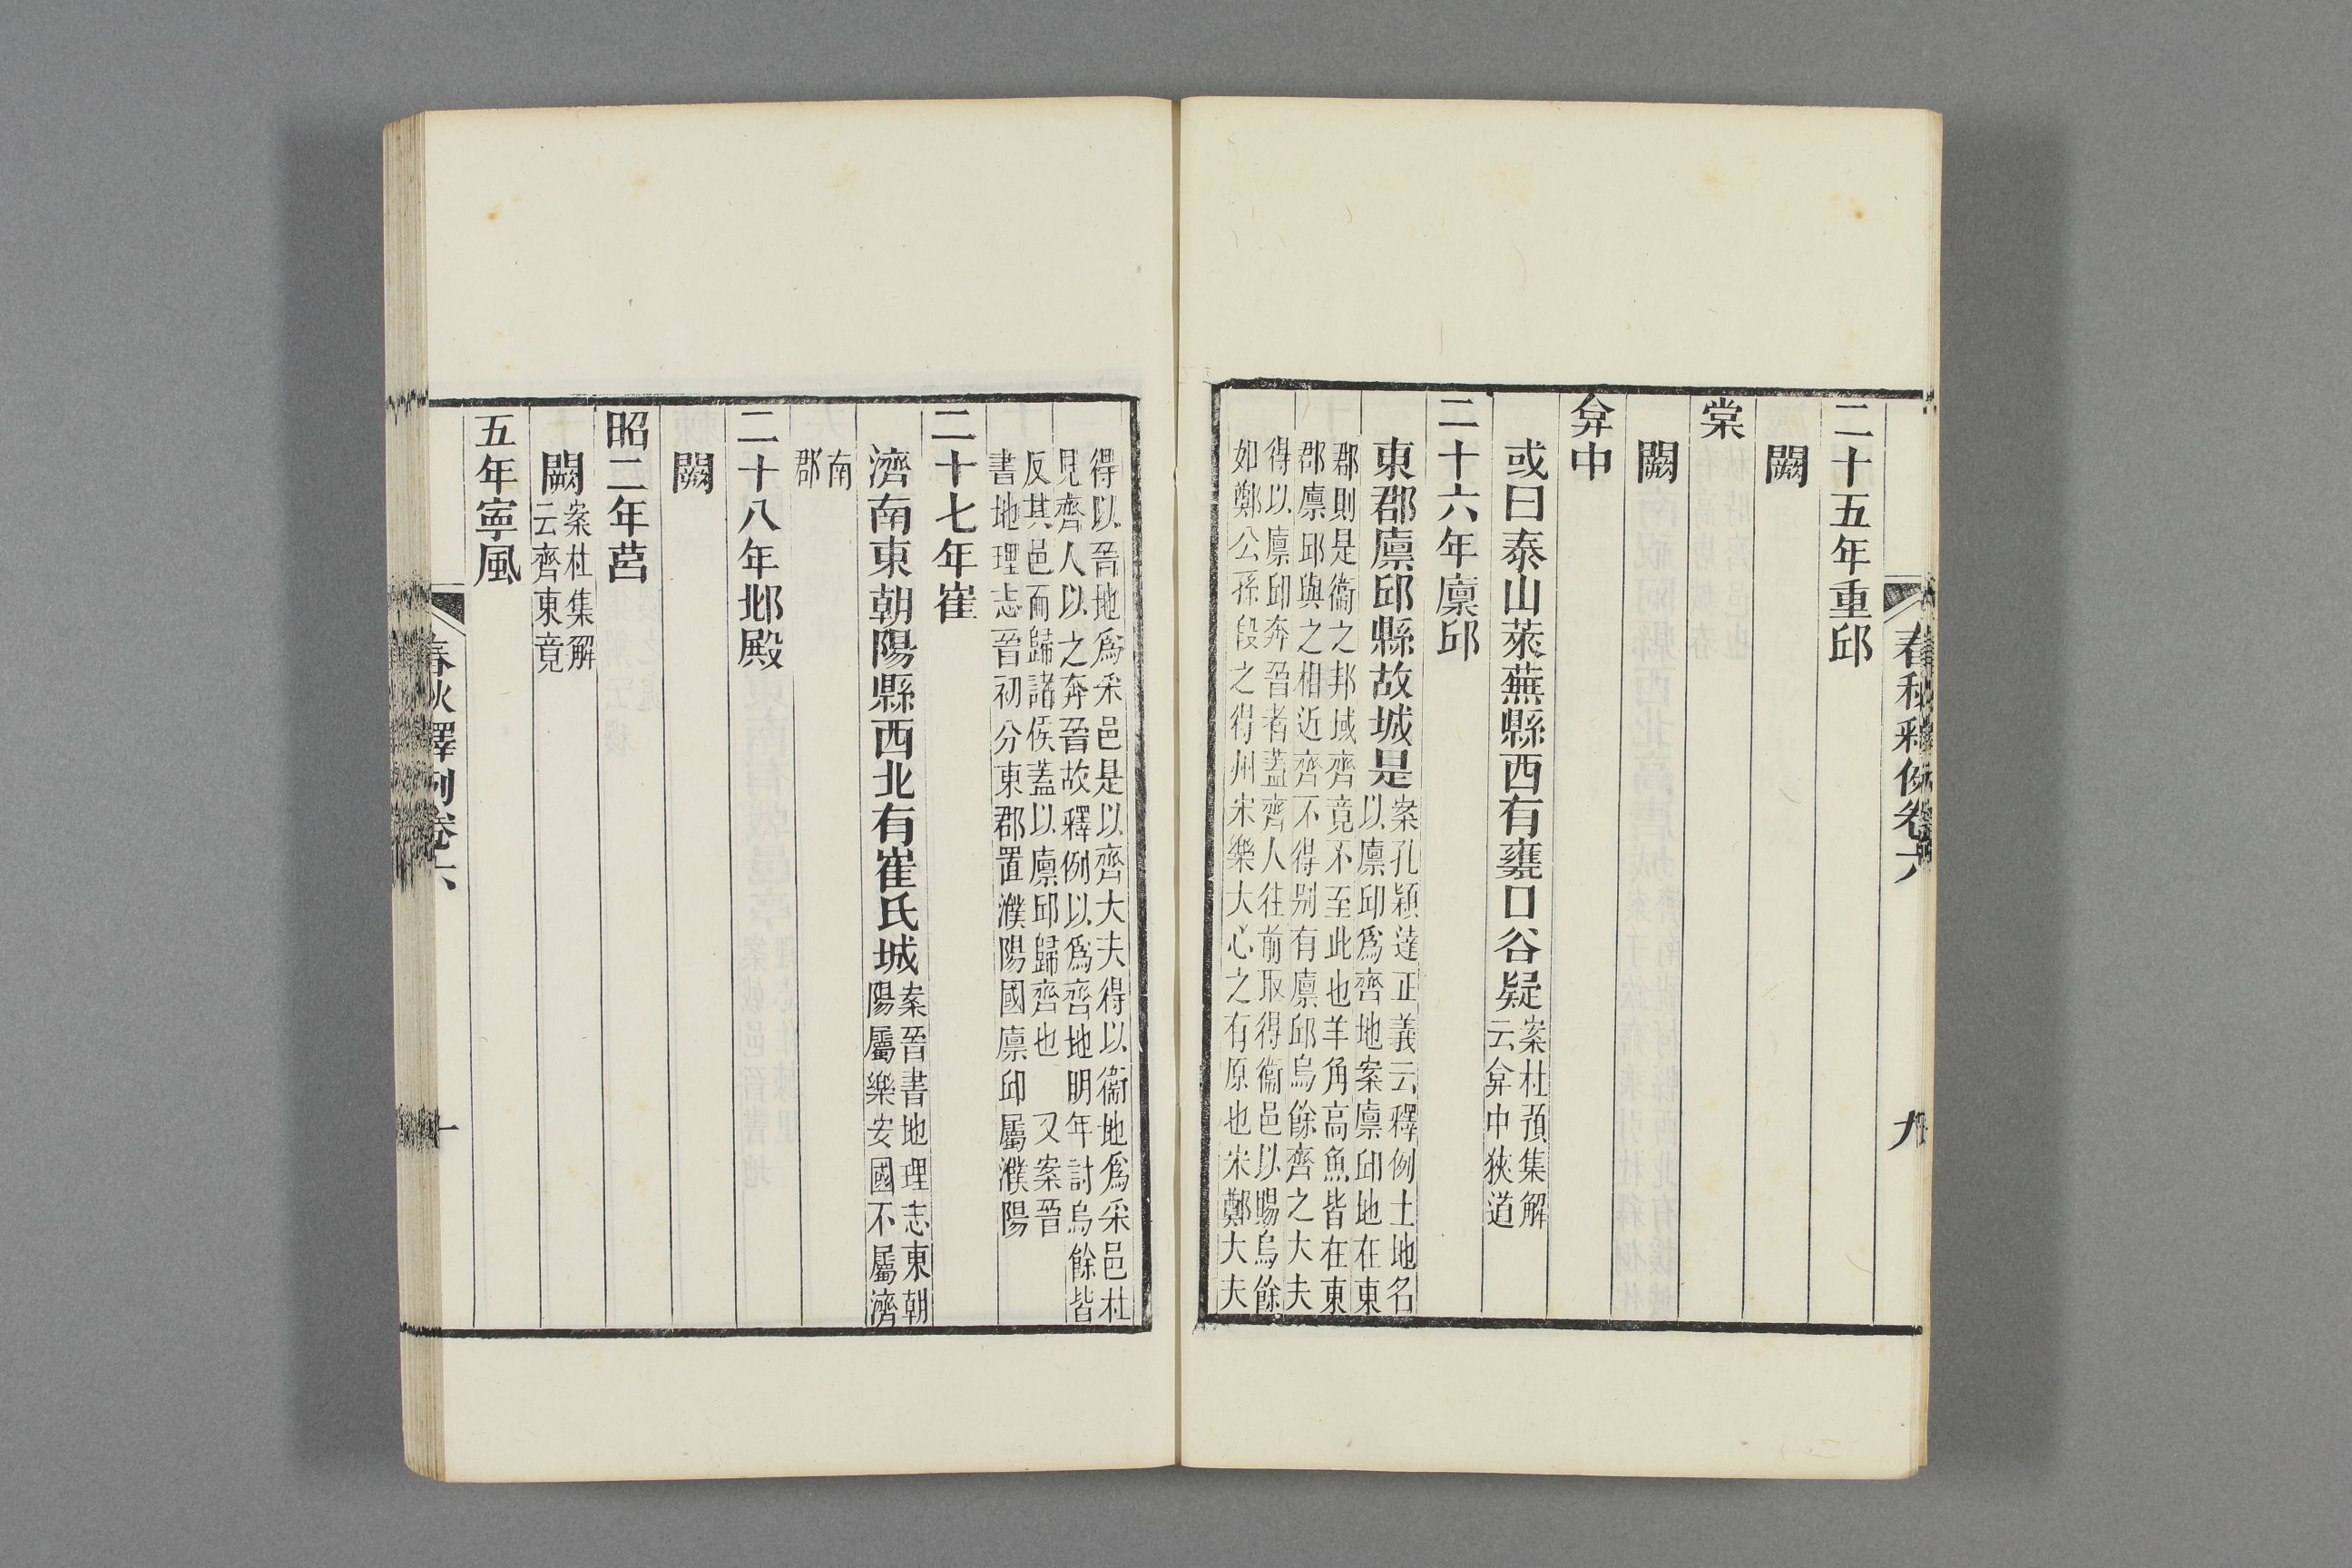 春秋釋例卷六
九
二十五年重邱
闕
棠
闕
弇中
或曰泰山萊蕪縣西有甕口谷疑
案杜預集解
云弇中狹道
二十六年廪邱
東郡廪邱縣故城是
案孔穎達正義云釋例土地名
以廪邱爲齊地案廪邱地在東
郡則是衞之邦域齊竟不至此也羊角高魚皆在東
郡廪邱與之相近齊不得别有廪邱烏餘齊之大夫
得以廪邱奔晉者蓋齊人往前取得衞邑以賜烏餘
如鄭公孫段之得州宋樂大心之有原也宋鄭大夫
得以晉地爲采邑是以齊大夫得以衞地爲采邑杜
見齊人以之奔晉故釋例以爲齊地明年討烏餘皆
反其邑而歸諸侯蓋以廪邱歸齊也 又案晉
書地理志晉初分東郡置濮陽國廪邱屬濮陽
二十七年崔
濟南東朝陽縣西北有崔氏城
案晉書地理志東朝
陽屬樂安國不屬濟
南
郡
二十八年邶殿
闕
昭二年莒
闕
案杜集解
云齊東竟
五年寧風
春秋釋例卷六
十